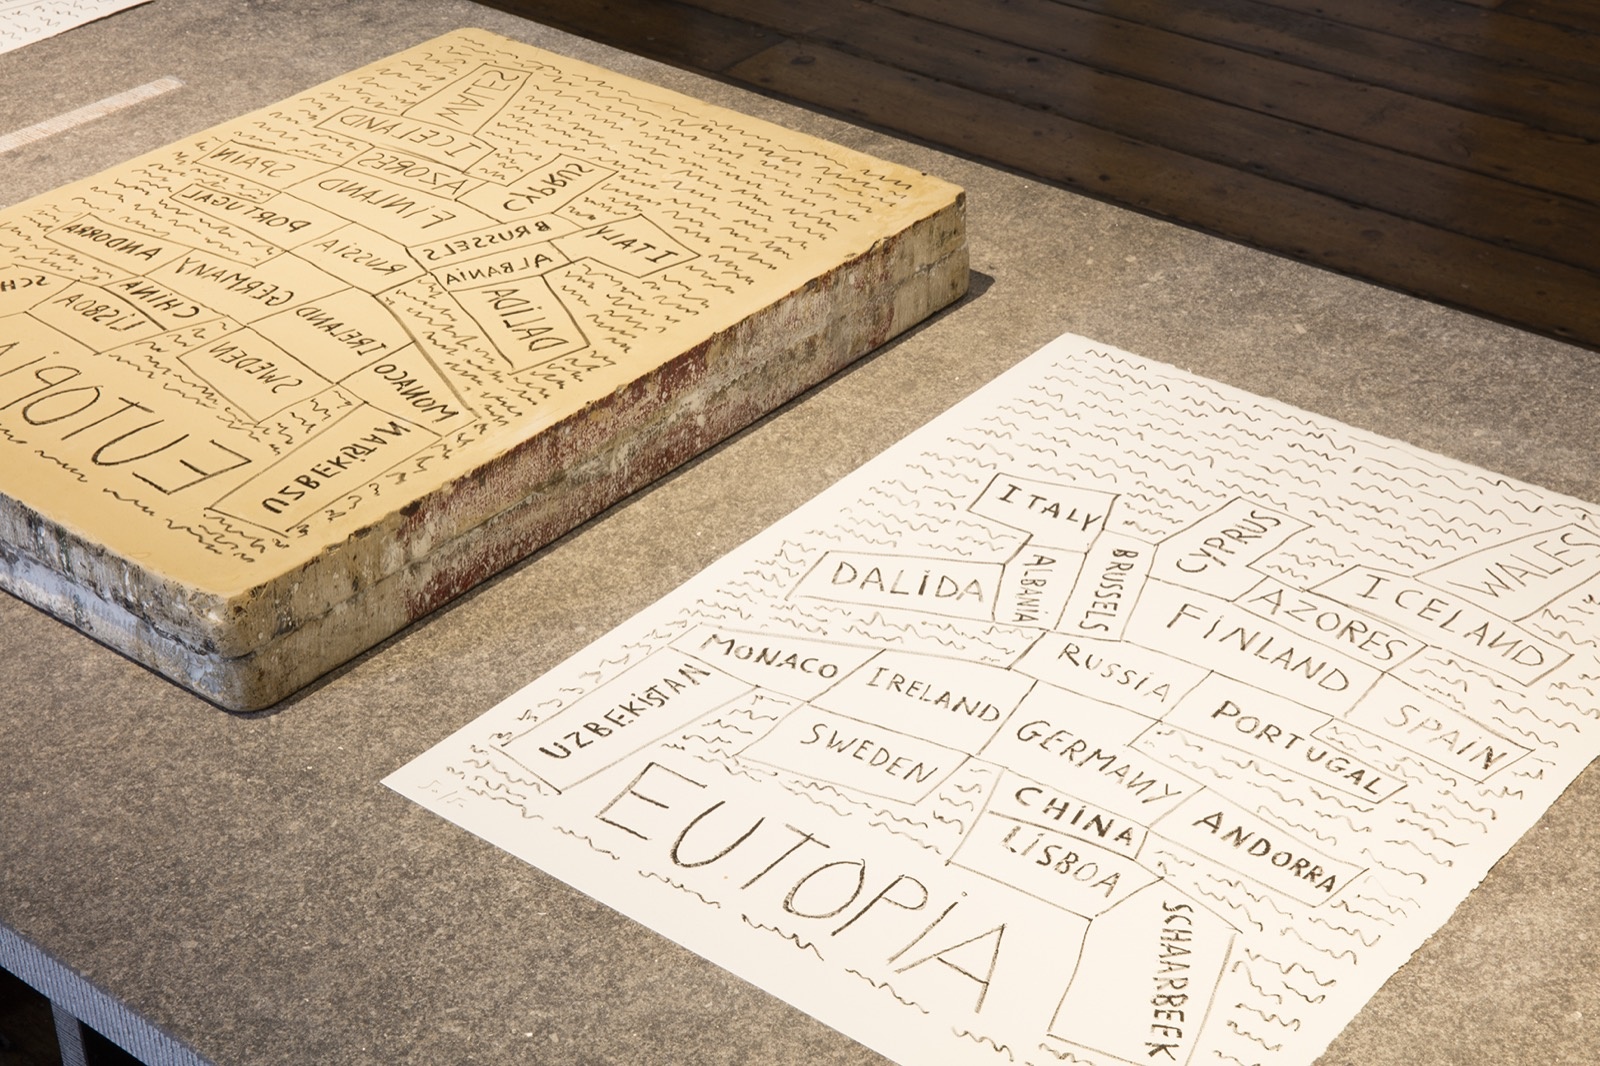 WALES
ICELAND
AZORES
SPAIN
CYPRUS
FINLAND
PORTUGAL
ITALY
BRUSSELS
RUSSIA
ALBANIA
ANDORRA
GERMANY
DALIDA
CHINA
IRELAND
LISBOA
SWEDEN
MONACO
UZBEKISTAN
EUTOPIA
ITALY
CYPRUS
WALES
DALIDA
ALBANIA
BRUSSELS
FINLAND
AZORES
ICELAND
MONACO
IRELAND
RUSSIA
PORTUGAL
SPAIN
UZBEKISTAN
SWEDEN
GERMANY
CHINA
ANDORRA
LISBOA
EUTOPIA
SCHAARBEEK